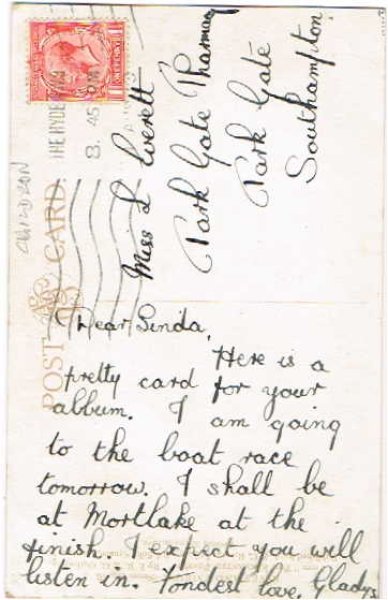 THE HYDE
8. 45 PM
POST CARD.
Miss L Everett
Park Gate Pharmacy
Park Gate
Southampton
Dear Linda,
Here is a
pretty card for your
album. I am going
to the boat race
tomorrow. I shall be
at Mortlake at the
finish. I expect you will
listen in. Fondest love, Gladys